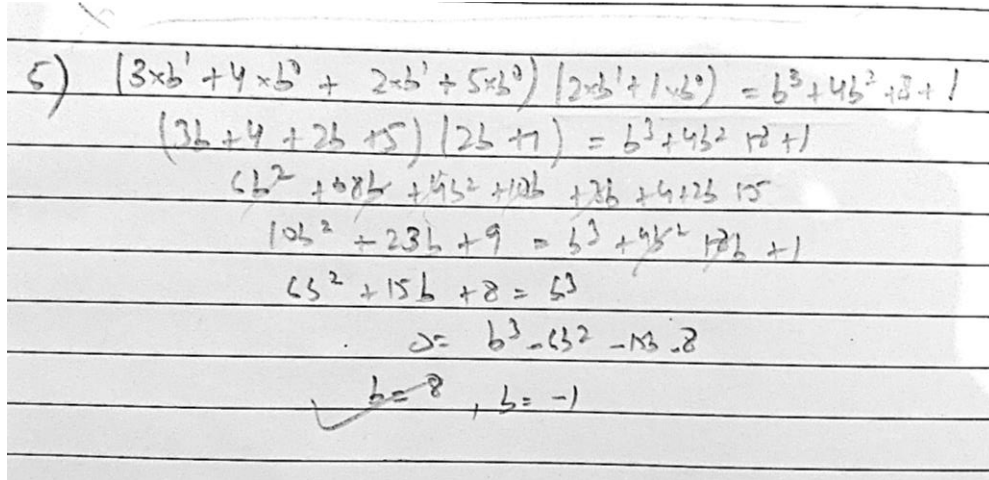 5) (3×b¹ + 4×b⁰ + 2×b¹ + 5×b⁰) (2×b¹ + 1×b⁰) = b³ + 4b² + 8 + 1
(3b + 4 + 2b + 5) (2b + 1) = b³ + 4b² + 8 + 1
6b² + 8b + 4b² + 10b + 3b + 4 + 2b + 5
10b² + 23b + 9 = b³ + 4b² + 8b + 1
6b² + 15b + 8 = b³
0 = b³ - 6b² - 15b - 8
b = 8, b = -1